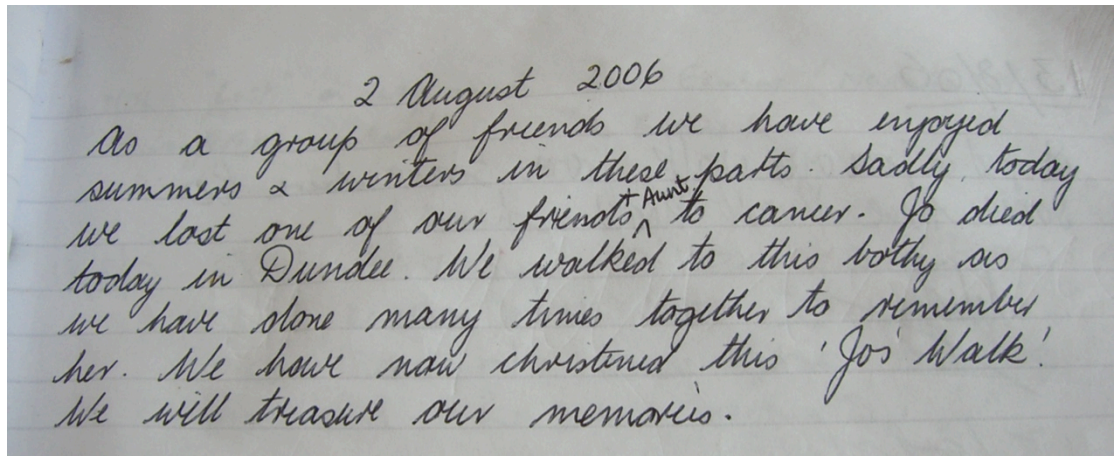 2 August 2006
As a group of friends we have enjoyed
summers & winters in these parts. Sadly, today
we lost one of our friends + Aunt to cancer. Jo died
today in Dundee. We walked to this bothy as
we have done many times together to remember
her. We have now christened this 'Jo's Walk'.
We will treasure our memories.